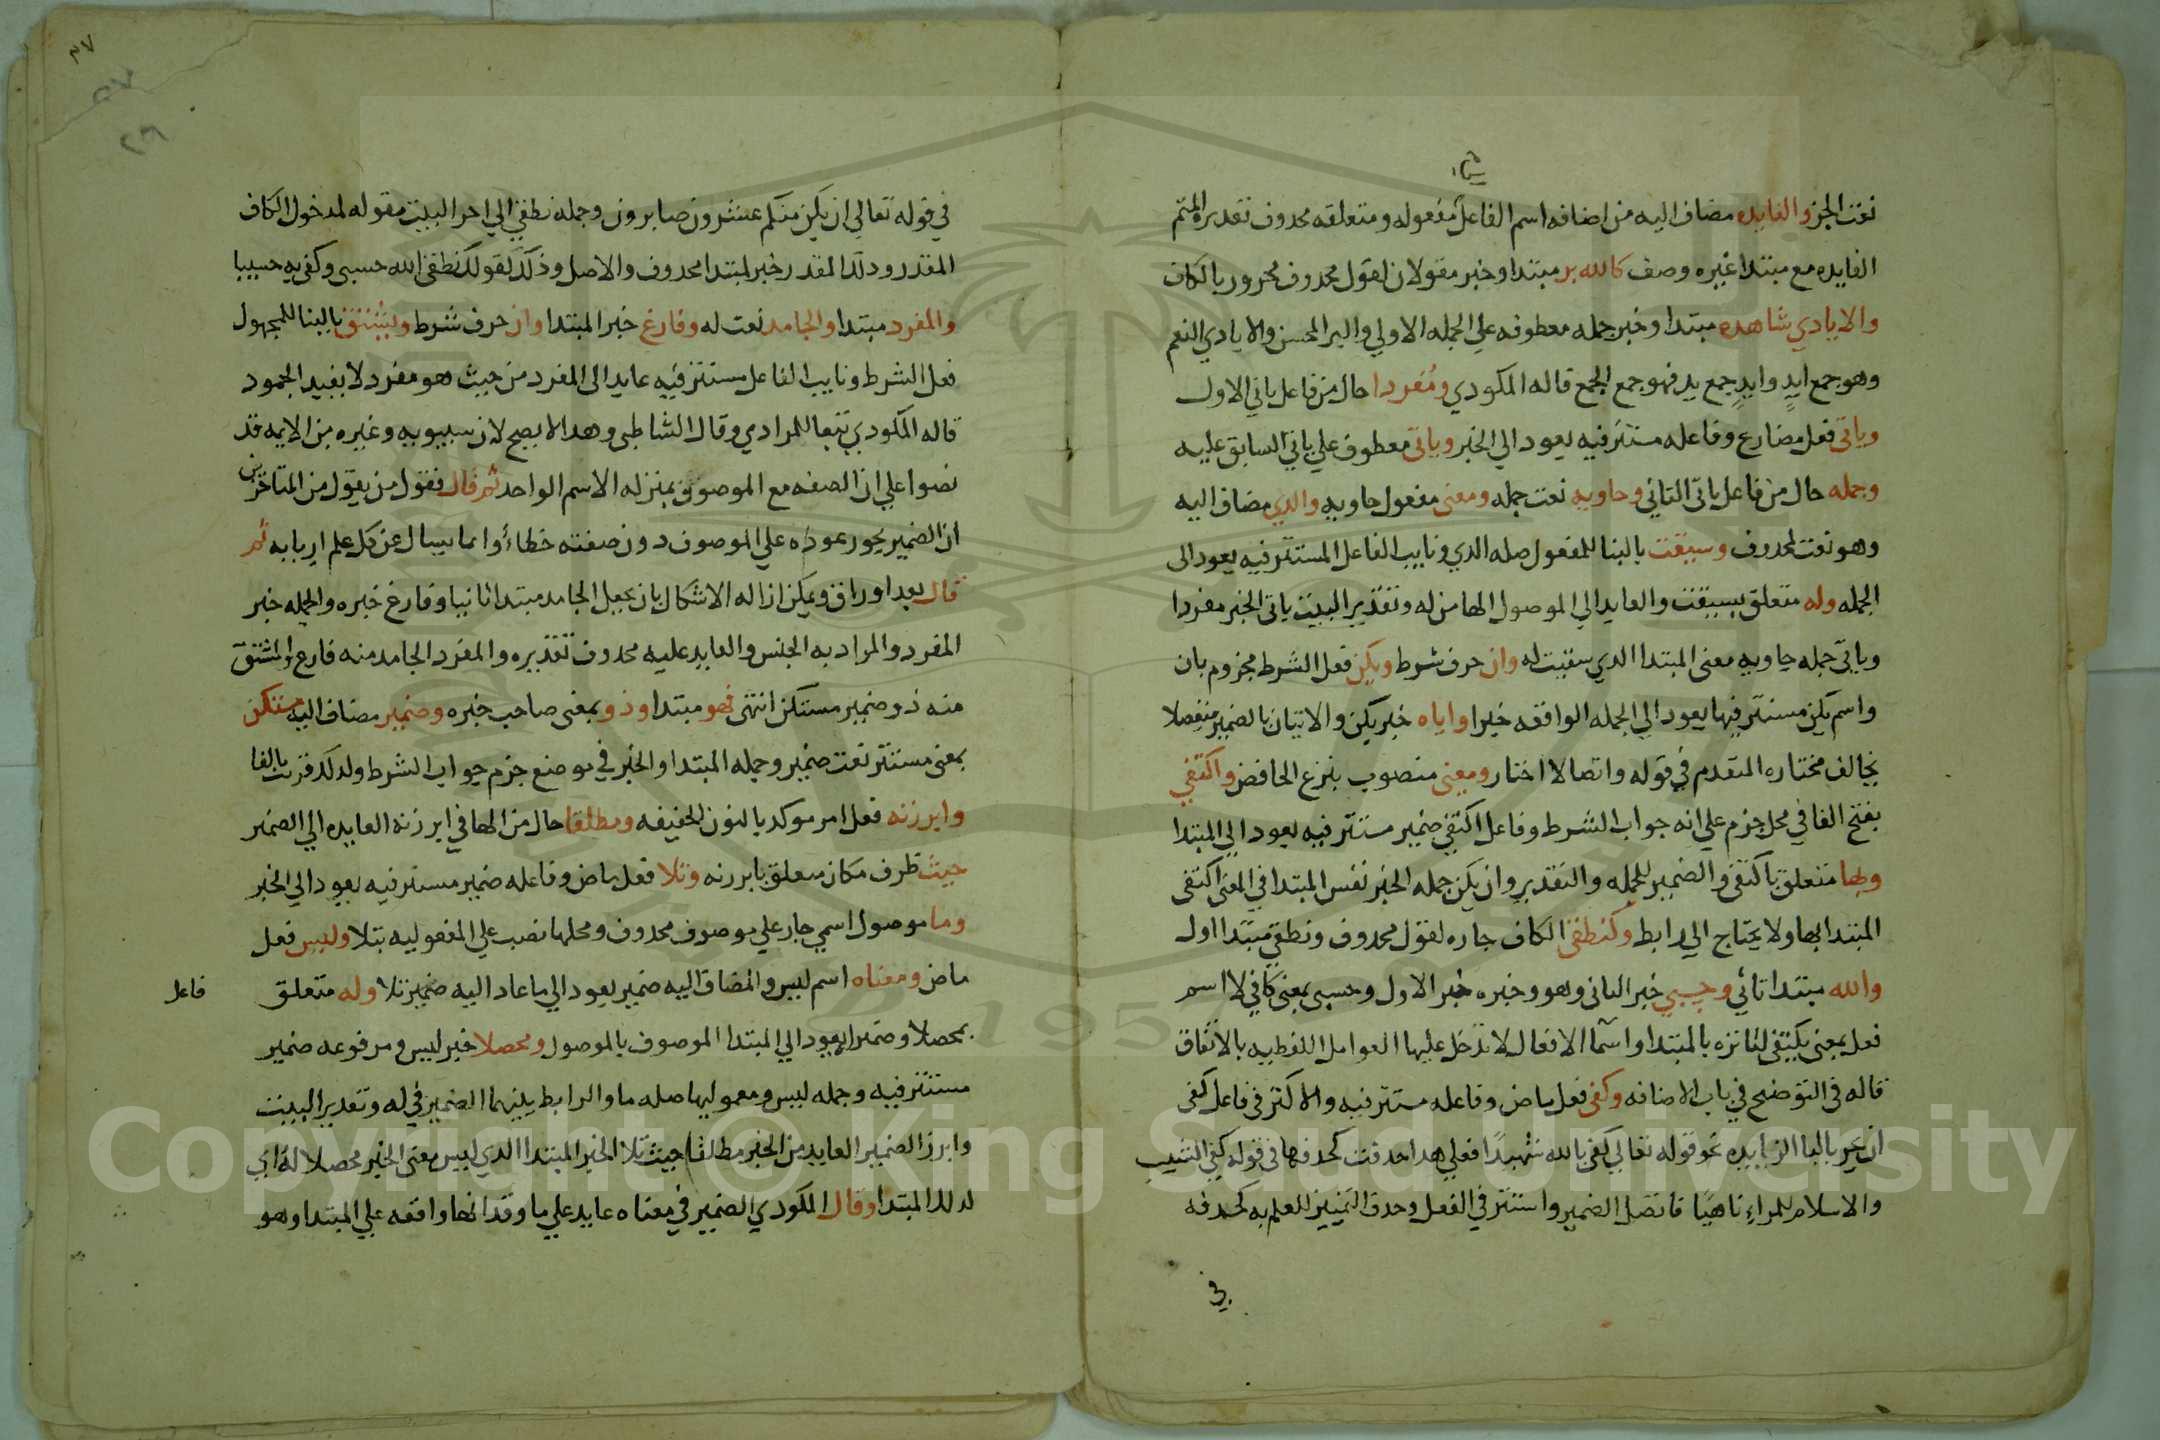 نعت الجز والفايده مضاف اليه من اضافه اسم الفاعل لمفعوله ومتعلقه محدوف تقديره المتم
الفايده مع مبتدا غيره وصف كالله بر مبتدا وخبر مقولان لقول محدوف مجرور بالكاف
والايادي شاهده مبتدا وخبر جمله معطوفه علي الجمله الاولي والبر المحسن والايادي النعم
وهو جمع ايدٍ وايدٍ جمع يد فهو جمع الجمع قاله المكودي ومُفردا حال من فاعل ياتي الاول
وياتى فعل مضارع وفاعله مستتر فيه يعود الي الخبر وياتى معطوف علي ياتي السابق عليه
وجمله حال من فاعل ياتى التاني وحاويه نعت جمله ومعنى مفعول حاويه والدي مضاف اليه
وهو نعت لمحدوف وسيقت بالبنا للمفعول صله الدي ونايب الفاعل المستتر فيه يعود الى
الجمله وله متعلق بسيقت والعايد الي الموصول الها من له وتقدير البيت ياتى الخبر مفردا
وياتى جمله حاويه معنى المبتدا الدي سيقت له وان حرف شرط ويكن فعل الشرط مجزوم بان
واسم يكن مستتر فيها يعود الي الجمله الواقعه خبرا واياه خبر يكن والاتيان بالضمير منفصلا
يخالف مختاره المتقدم في قوله واتصالا اختار ومعنى منصوب بنزع الخافض واكتفي
بفتح الفا في محل جزم علي انه جواب الشرط وفاعل اكتفي ضمير مستتر فيه يعود الي المبتدا
وبها متعلق باكتفى والضمير للجمله والتقدير وان يكن جمله الخبر نفس المبتدا في المعنى اكتفى
المبتدا بها ولا يحتاج الي رابط وكنطقى الكاف جاره لقول محدوف ونطقي مبتدا اول
والله مبتدا تاني وحسبي خبر التانى وهو وخبره خبر الاول وحسبى بمعنى كافي لا اسم
فعل بمعنى يكتفى لتاتره بالمبتدا واسما الافعال لا تدخل عليها العوامل اللفظيه بالاتفاق
قاله في التوضيح في باب الاضافه وكفى فعل ماض وفاعله مستتر فيه والاكتر في فاعل كفى
ان يجر بالبا الزايده نحو قوله تعالي كفى بالله شهيدًا فعلي هدا حدفت كحدفها في قوله كفي الشيب
والاسلام للمراء ناهيًا فاتصل الضمير واستتر في الفعل وحدف التمييز للعلم به كحدفه
في
في قوله تعالي ان يكن منكم عشرون صابرون وجمله نطقي الي اخر البيت مقوله لمدخول الكاف
المقدر ودلك المقدر خبر لمبتدا محدوف والاصل ودلك كقولك نطقى الله حسبى وكفى به حسيبا
والمفرد مبتدا والجامد نعت له وفارغ خبر المبتدا وان حرف شرط ويشتق بالبنا للمجهول
فعل الشرط ونايب الفاعل مستتر فيه عايد الى المفرد من حيث هو مفرد لا بقيد الجمود
قاله المكودي تبعا للمرادي وقال الشاطبى وهدا لا يصح لان سيبويه وغيره من الايمه قد
نصوا علي ان الصفه مع الموصوف بمنزله الاسم الواحد ثم قال فقول من يقول من المتاخرين
ان الضمير يجوز عوده علي الموصوف دون صفته خطاء وانما يسال عن كل علم اربابه ثم
قال بعد اوراق ويمكن ازاله الاشكال بان يجعل الجامد مبتدا ثانيا وفارغ خبره والجمله خبر
المفرد والمراد به الجنس والعايد عليه محدوف تقديره والمفرد الجامد منه فارغ والمشتق
منه ذو ضمير مستكن انتهى فهو مبتدا وذو بمعنى صاحب خبره وضمير مضاف اليه مستكن
بمعنى مستتر نعت ضمير وجمله المبتدا والخبر في موضع جزم جواب الشرط ولدلك قرنت بالفا
وابرزنه فعل امر موكد بالنون الخفيفه ومطلقا حال من الها في ابرزنه العايده الي الضمير
حيث ظرف مكان متعلق بابرزنه وتلا فعل ماض وفاعله ضمير مستتر فيه يعود الي الخبر
وما موصول اسمي جار علي موصوف محدوف ومحلها نصب علي المفعوليه بتلا وليس فعل
ماض ومعناه اسم ليس والمضاف اليه ضمير يعود الي ما عاد اليه ضمير تلا وله متعلق
فاعل
بمحصلا وضميرا يعود الي المبتدا الموصوف بالموصول ومحصلا خبر ليس ومرفوعه ضمير
مستتر فيه وجمله ليس ومعموليها صله ما والرابط بينهما الضمير في له وتقدير البيت
وابرز الضمير العايد من الخبر مطلقا حيث تلا الخبر المبتدا الدي ليس معنى الخبر محصلا له اي
لدلك المبتدا وقال المكودي الضمير في معناه عايد علي ما وقد انها واقعه علي المبتدا وهو